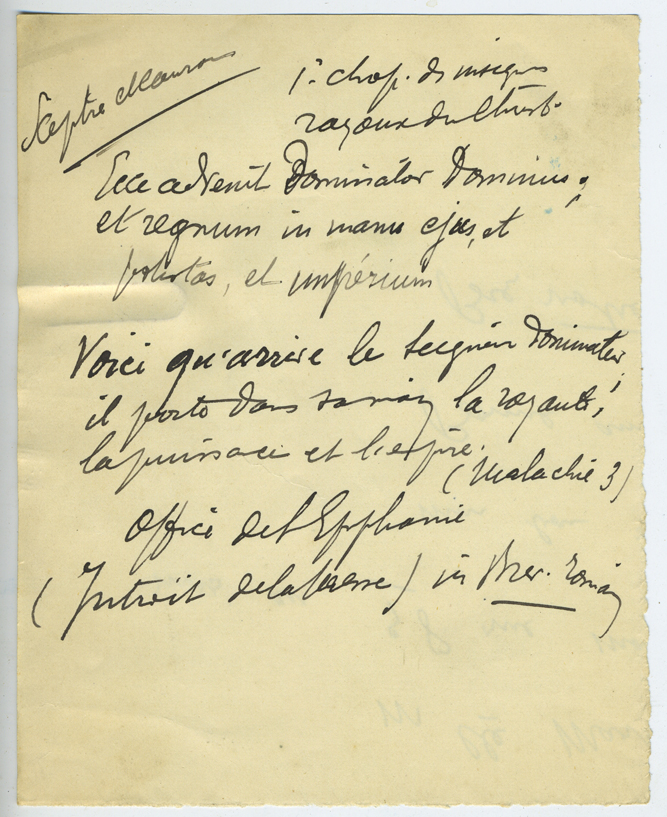 Sceptre
1° chap. des insignes
royaux du Christ.
Ecce advenit Dominátor Dominus;
et regnum in manu ejus, et
potestas, et impérium
Voici qu'arrive le Seigneur dominateur,
il porte dans sa main la royauté,
la puissance et l'empire.
(Malachie 3)
Office de l'Epiphanie
(Introït de la messe) in Brev. romain